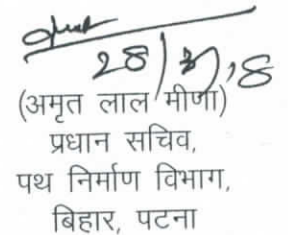 28
(अमृत लाल मीणा)
प्रधान सचिव,
पथ निर्माण विभाग,
बिहार, पटना